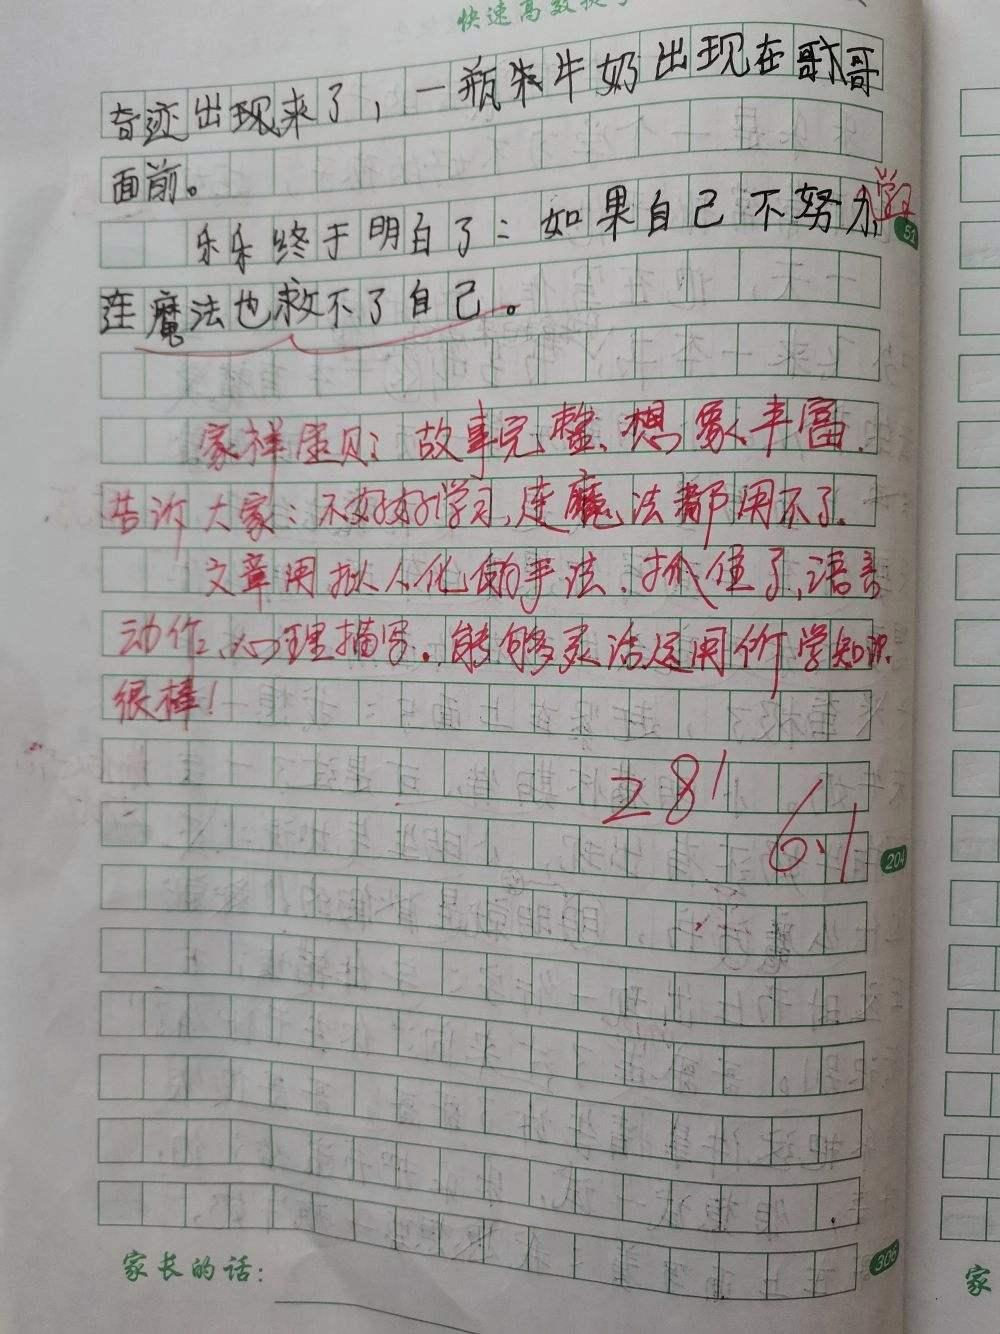 快速高效提
奇迹出现来了，一瓶牛奶出现在哥哥
面前。
乐乐终于明白了：如果自己不努力学习
51
连魔法也救不了自己。
家祥宝贝：故事完整、想象丰富.
告诉大家：不好好学习,连魔法都用不了.
文章用拟人化的手法.抓住了,语言
动作、心理描写.能够灵活运用所学知识
很棒！
281
6.1
204
306
家长的话：
家